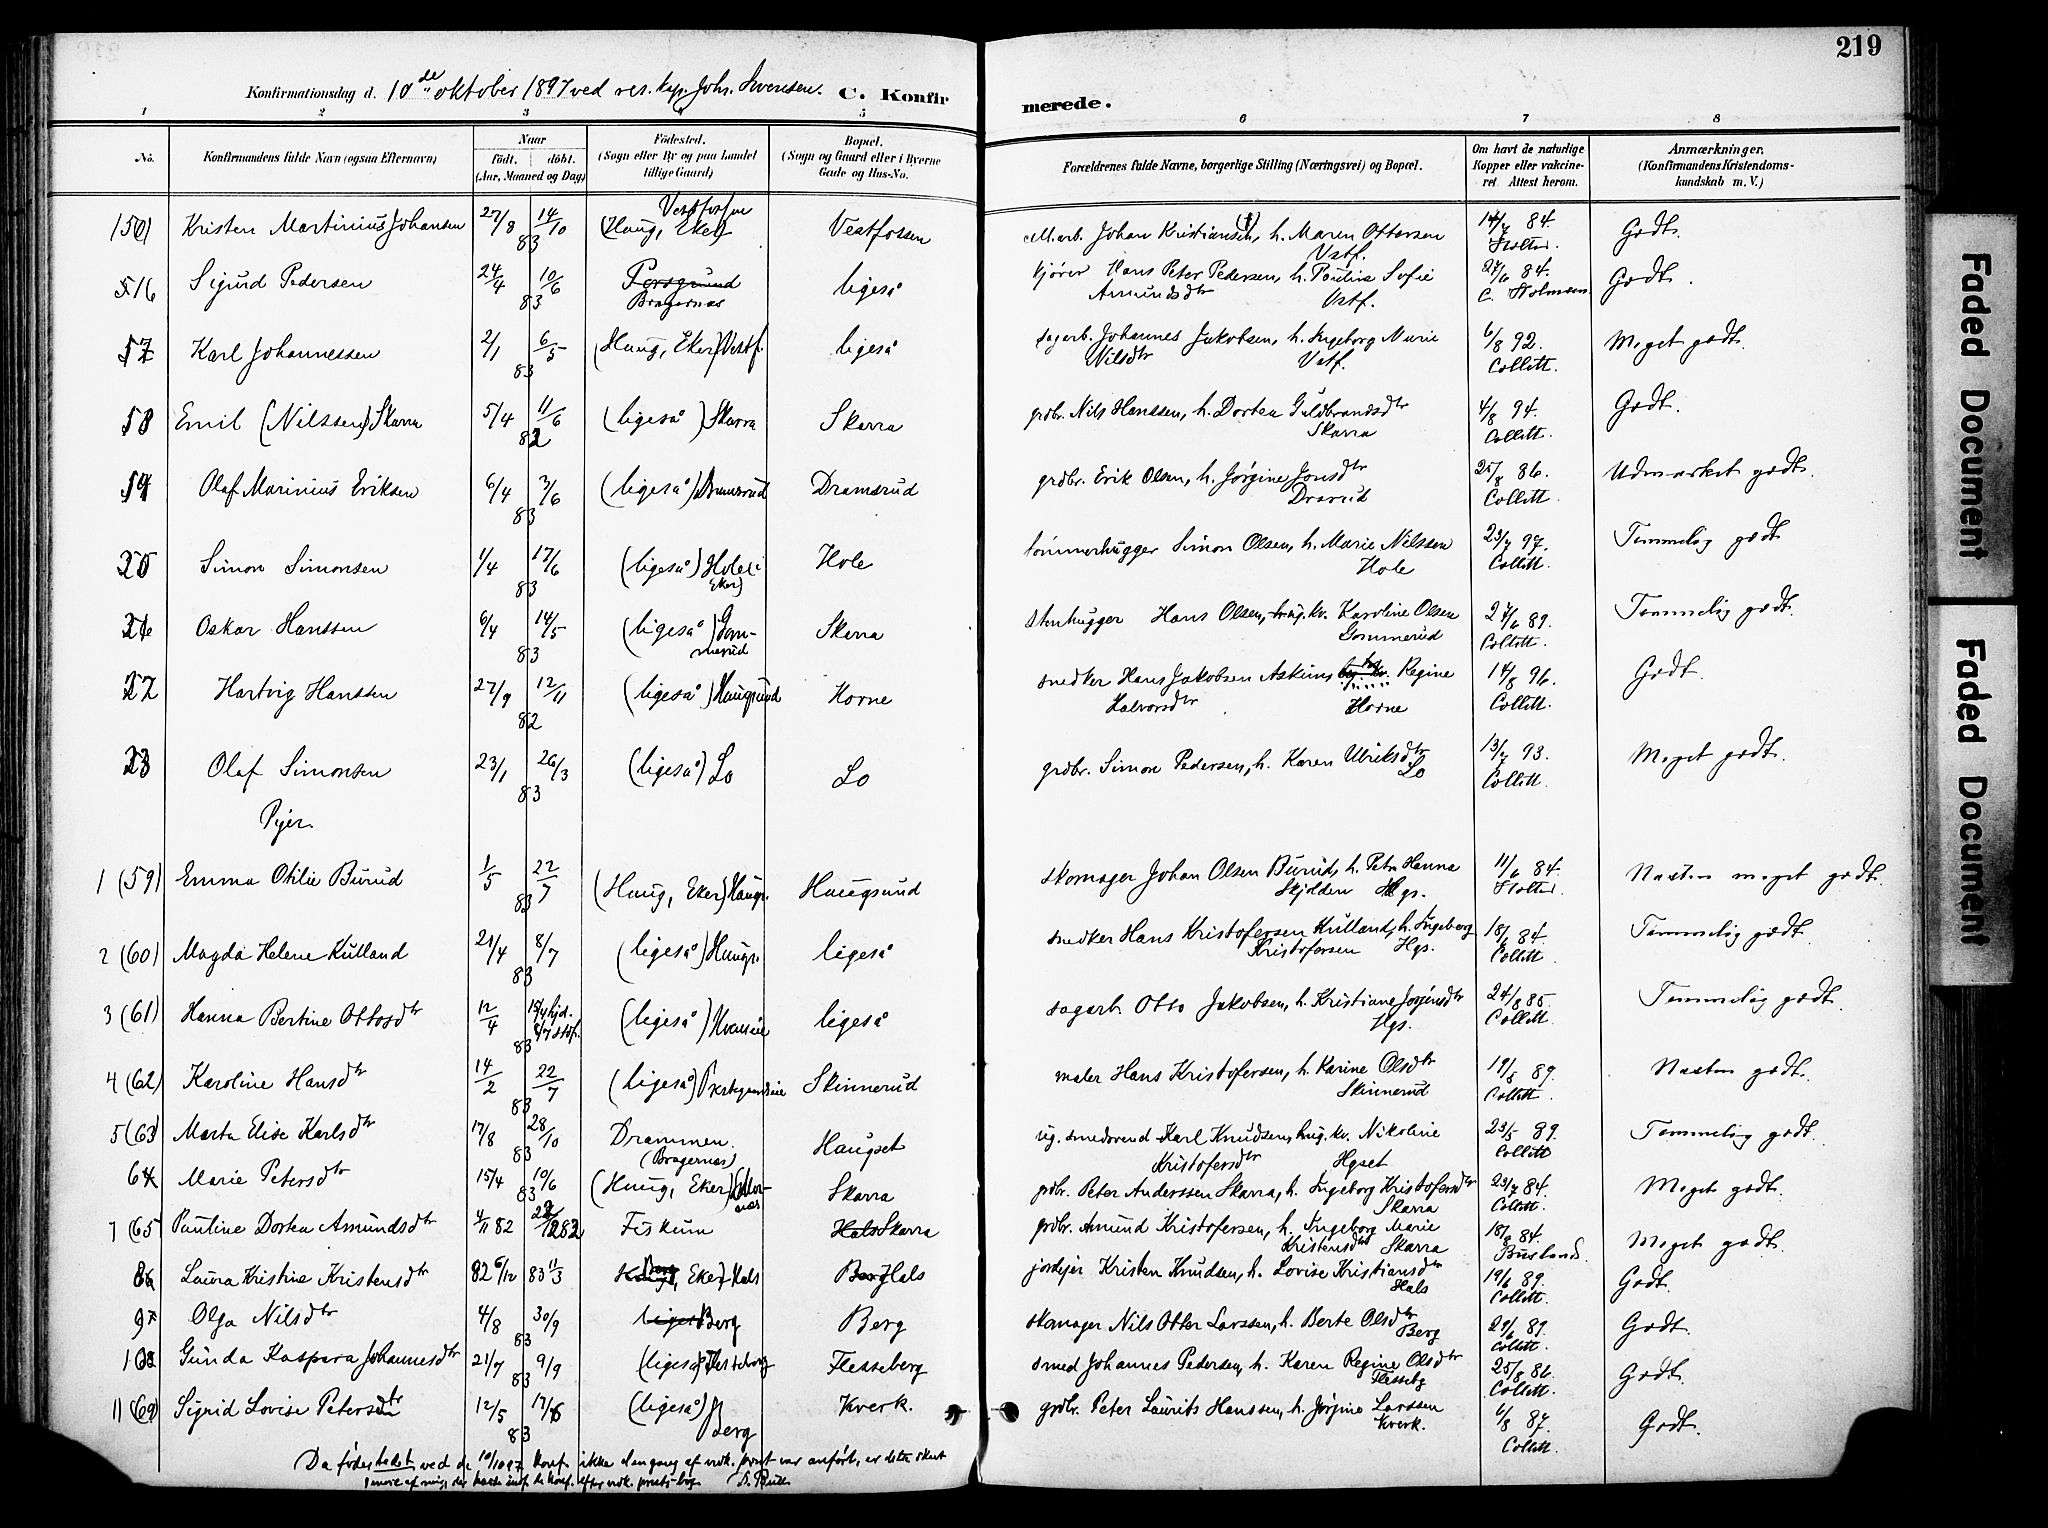 219
Konfirmationsdag d. 10de oktober 1897 ved res. kap. Johs. Svendsen. C. Konfirmerede.
1 2 3 4 5 6 7 8
No. Konfirmandens fulde Navn (ogsaa Efternavn) Naar födt. döbt. (Aar, Maaned og Dag) Födested. (Sogn eller By og paa Landet tillige Gaard) Bopæl. (Sogn og Gaard eller i Byerne Gade og Hus-No. Forældrenes fulde Navne, borgerlige Stilling (Næringsvei) og Bopæl. Om havt de naturlige Kopper eller vakcineret Attest herom. Anmærkninger. (Konfirmandens Kristendomskundskab m. V.)
Kristen Martinius Johansen 27/8 83 14/10 (Haug, Eker) Vestfossen Vestfossen Marb. Johan Kristiansen (t), h. Maren Ottersen Vestf. 84. Holter. Godt.
16 Sigurd Pedersen 24/4 83 10/6 Porsgrund Bragernæs ligeså kjører Hans Peter Pedersen, h. Pauline Sofie Amundsdtr Vestf. 27/6 84. C. Holmsen Godt.
17 Karl Johannessen 2/1 83 6/5 (Haug, Eker) Vestf. ligeså sagarb. Johannes Jakobsen, h. Ingeborg Marie Nilsdtr Vestf. 6/8 92. Collett. Meget godt.
18 Emil (Nilssen) Skarra 5/4 82 11/6 (ligeså) Skarra Skarra grdbr. Nils Hanssen, h. Dortea Guldbrandsdtr Skarra 4/8 94. Collett. Godt.
19 Olaf Marinius Eriksen 6/4 83 3/6 (ligeså) Dramsrud Dramsrud grdbr. Erik Olsen, h. Jørgine Jonsdtr 25/8 86. Collett. Udmærket godt.
20 Simon Simonsen 1/4 83 17/6 (ligeså) Hole i Eker) Hole tømmerhugger Simon Olsen, h. Marie Nilssen Hole 23/7 97. Collett. Temmelig godt
21 Oskar Hanssen 6/4 83 14/5 (ligeså) Gommerud Skarra stenhugger Hans Olsen, kv. Karoline Olsen Gommerud 27/6 89. Collett. Temmelig godt.
22 Hartvig Hanssen 27/9 82 12/11 (ligeså) Haugsund Horne snedker Hans Jakobsen Askims Regine Halvorsdtr Horne 14/8 96. Collett. Godt.
23 Olaf Simonsen 23/1 83 26/3 (ligeså) Lo Lo grdbr. Simon Pedersen, h. Karen Ulriksdtr Lo 13/7 93. Collett. Meget godt.
Piger.
1 (59) Emma Otilie Burud 1/5 83 22/7 (Haug, Eker) Haugs. Haugsund skomager Johan Olsen Burud, h. Petra Hanna Skjolden Hgs. 11/6 84. Holter. Næsten meget godt.
2 (60) Magda Helene Kulland 21/4 83 8/7 (ligeså) Haugs. ligeså snedker Hans Kristofersen Kulland, h. Ingeborg Kristofersen Hgs. 18/6 84. Collett. Temmelig godt.
3 (61) Hanna Bertine Ottosdtr 12/4 83 15/4 hjd. 8/7 stdf. (ligeså) ligeså sagarb. Otto Jakobsen, h. Kristiane Jorginsdtr Hgs. 24/8 85. Collett. Temmelig godt.
4 (62) Karoline Hansdtr 14/2 83 22/7 (ligeså) Skinnerud maler Hans Kristofersen, h. Karine Olsdtr Skinnerud 19/8 89. Collett. Næsten godt.
5 (63) Marta Elise Karlsdtr 17/8 83 28/10 Drammen. (Bragernæs) Haugset ug. smedsvend Karl Knudsen, ug. kv. Nikoline Kristofersdtr Hgset 23/5 89. Collett. Temmelig godt.
64 Marie Petersdtr 15/4 83 10/6 (Haug, Eker) Skarra grdbr. Peter Anderssen Skarra, h. Ingeborg Kristofersdtr Skarra 23/7 84. Collett. Meget godt.
7 (65) Pauline Dortea Amundsdtr 4/11 82 Fiskum Hals Skarra grdbr. Amund Kristofersen, h. Ingeborg Marie Kristensdtr Skarra 18/8 84. Meget godt.
8 Laura Kristine Kristensdtr 82 6/12 83 11/3 Berg, Eker) Hals Berg Hals jordejer Kristen Knudsen, h. Lovise Kristiansdtr Hals 19/6 89. Collett. Godt.
9 Olga Nilsdtr 4/8 83 30/9 ligeså Berg Berg skomager Nils Otter Larssen, h. Berte Olsdtr Berg 29/6 89. Collett. Godt.
10 Gunda Kaspara Johannesdtr 21/7 83 9/9 (ligeså) Flesseberg smed Johannes Pedersen, h. Karen Regine Olsdtr 25/8 86. Collett. Godt.
11 (69) Sigrid Lovise Petersdtr 12/5 83 17/6 (ligeså) Berg Kverk. grdbr. Peter Laurits Hanssen, h. Jørgine Larssen Kverk. 6/8 87. Collett. Godt.
Da fødestedet ved de 10/10 97 konf. ikke af vedk. prest var anført, er dette skeet
Faded Document
Faded Document